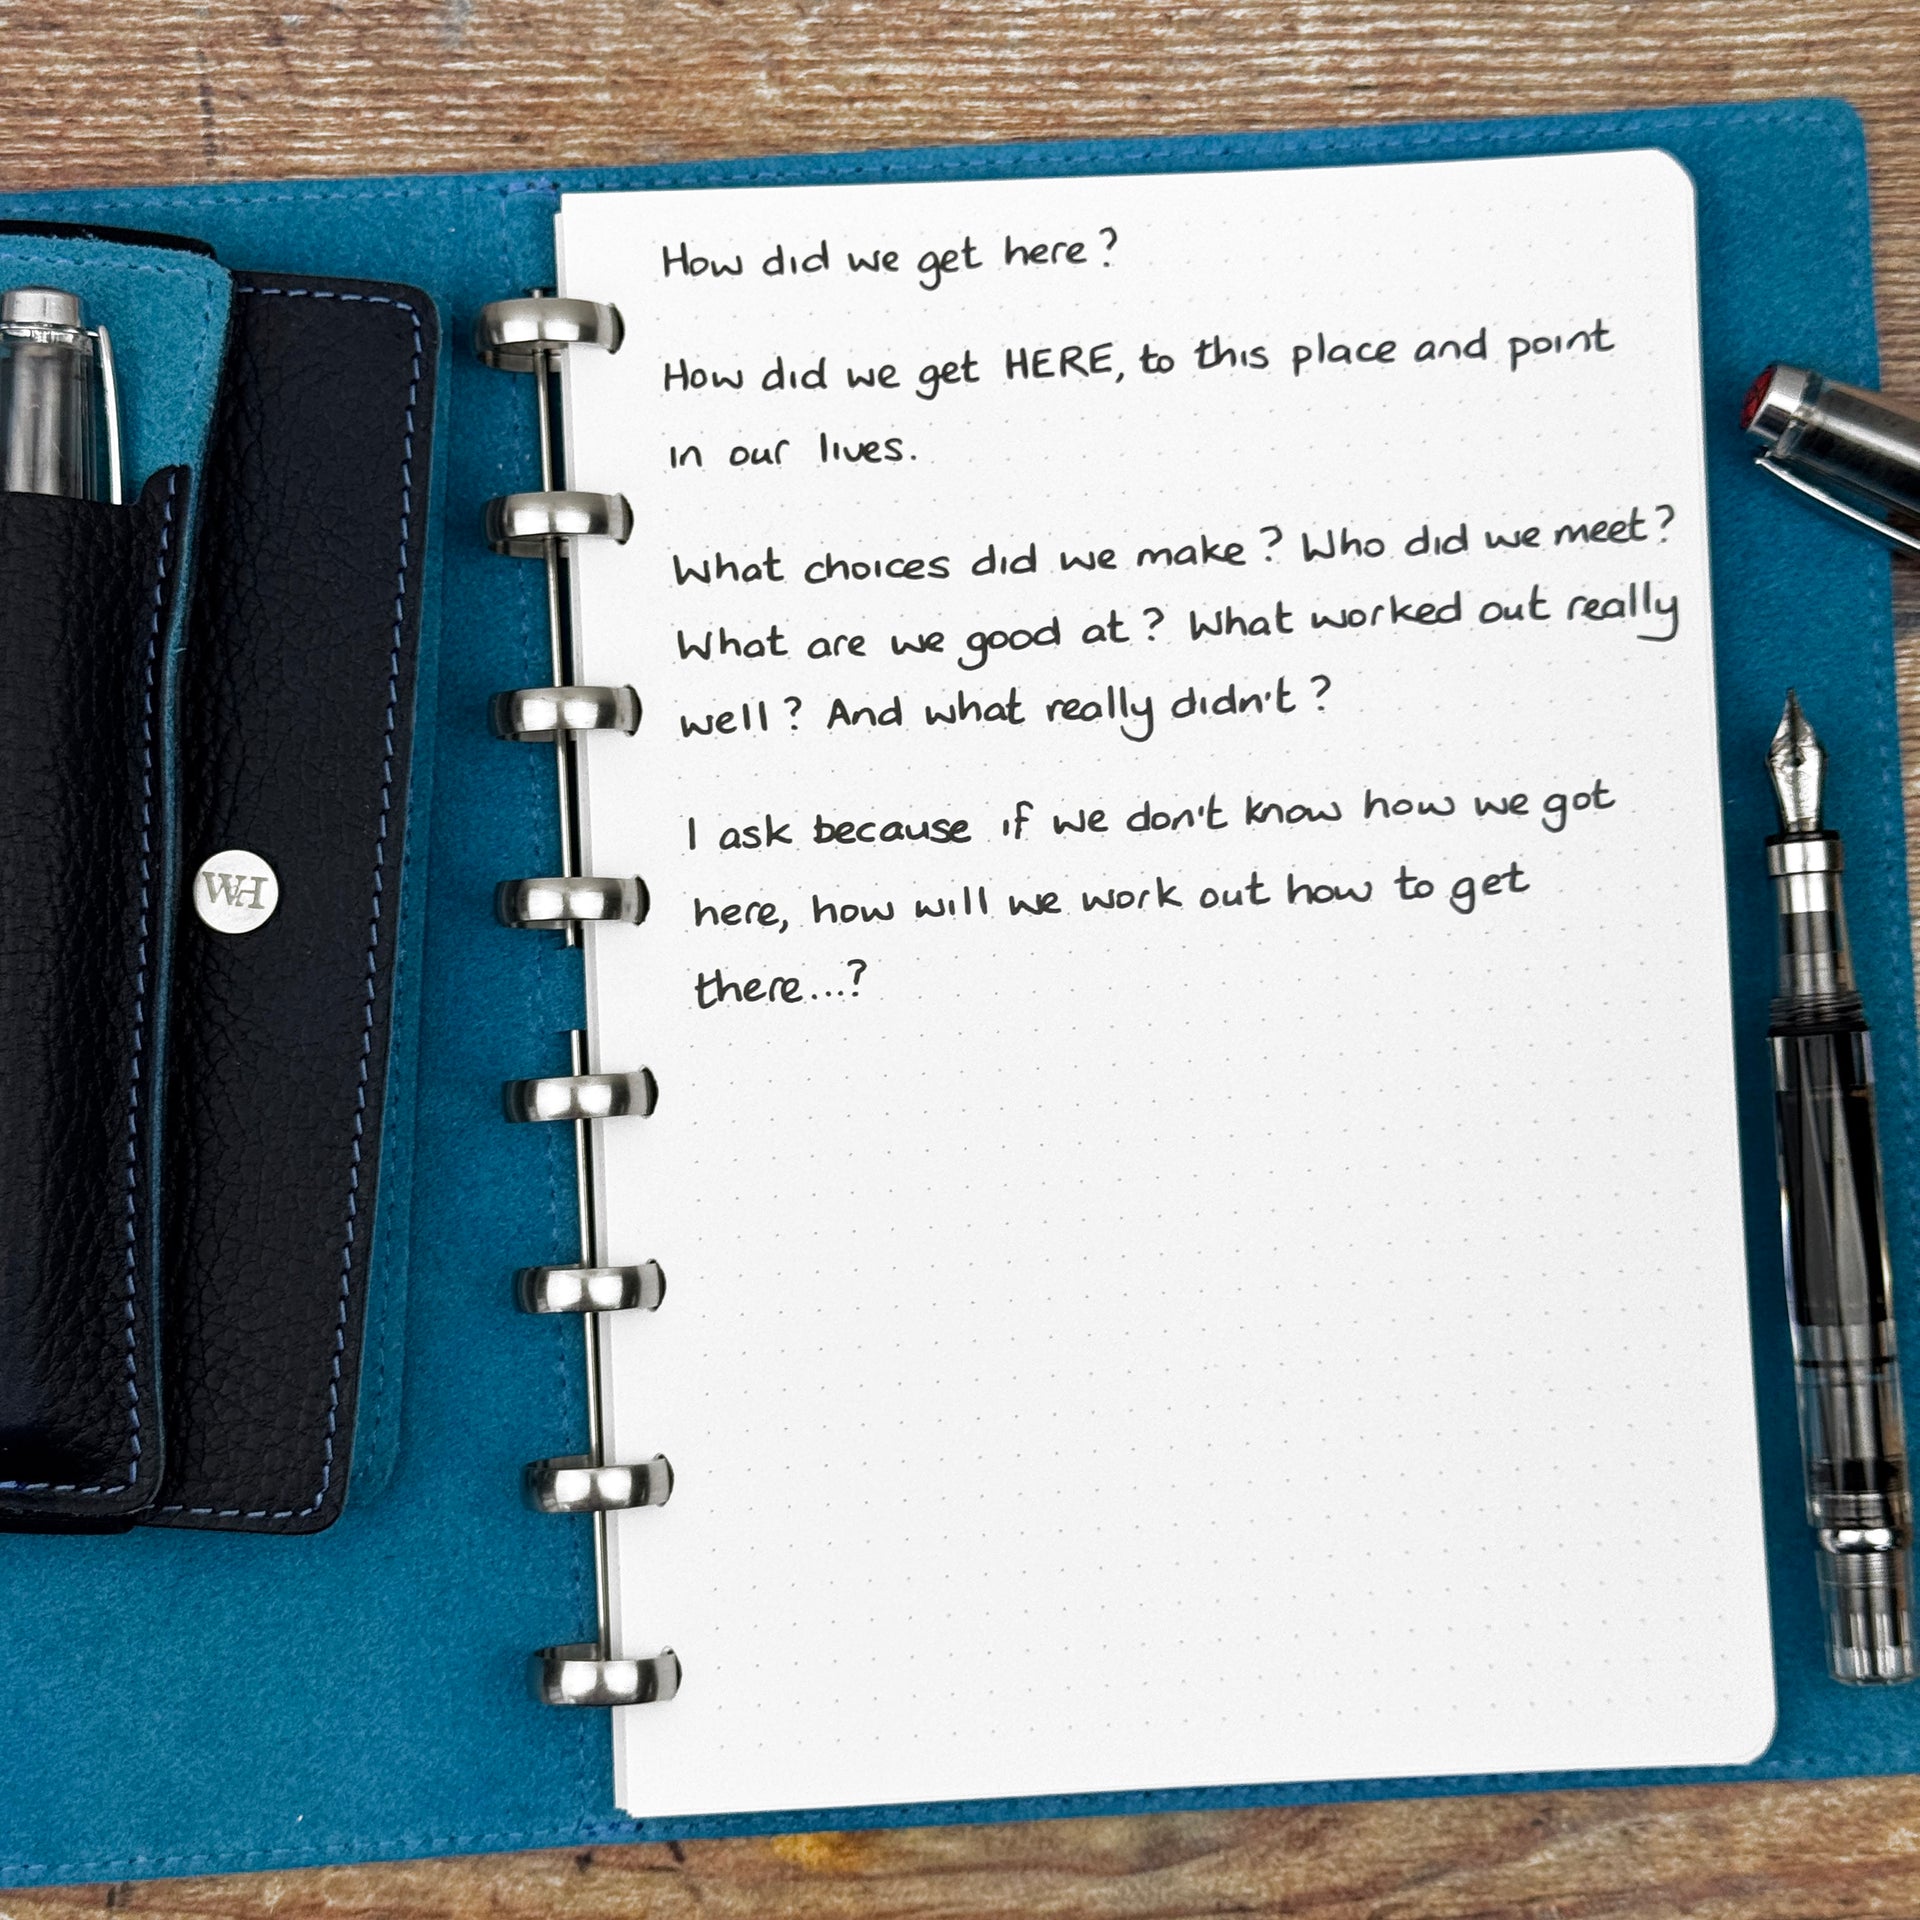 How did we get here?
How did we get HERE, to this place and point
in our lives.
What choices did we make? Who did we meet?
What are we good at? What worked out really
well? And what really didn't?
I ask because if we don't know how we got
here, how will we work out how to get
there...?
WH